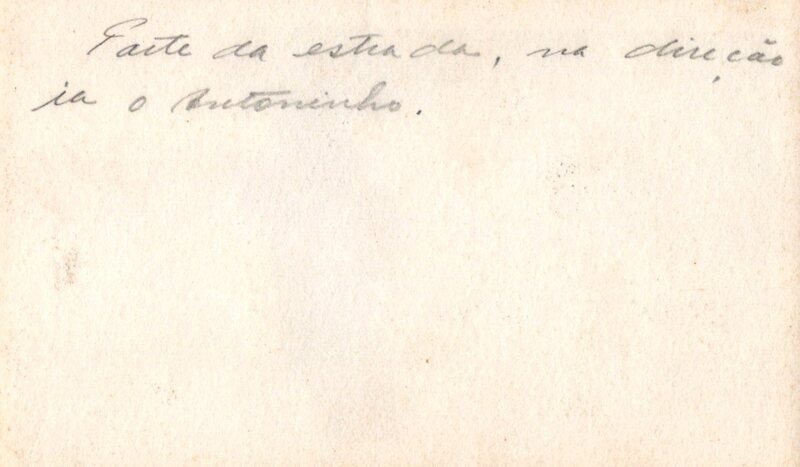 Parte da estrada, na direção
ia o Antoninho.